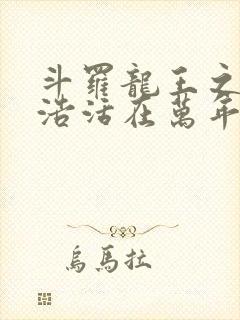 斗羅龍王之
浩活在萬年
烏馬拉